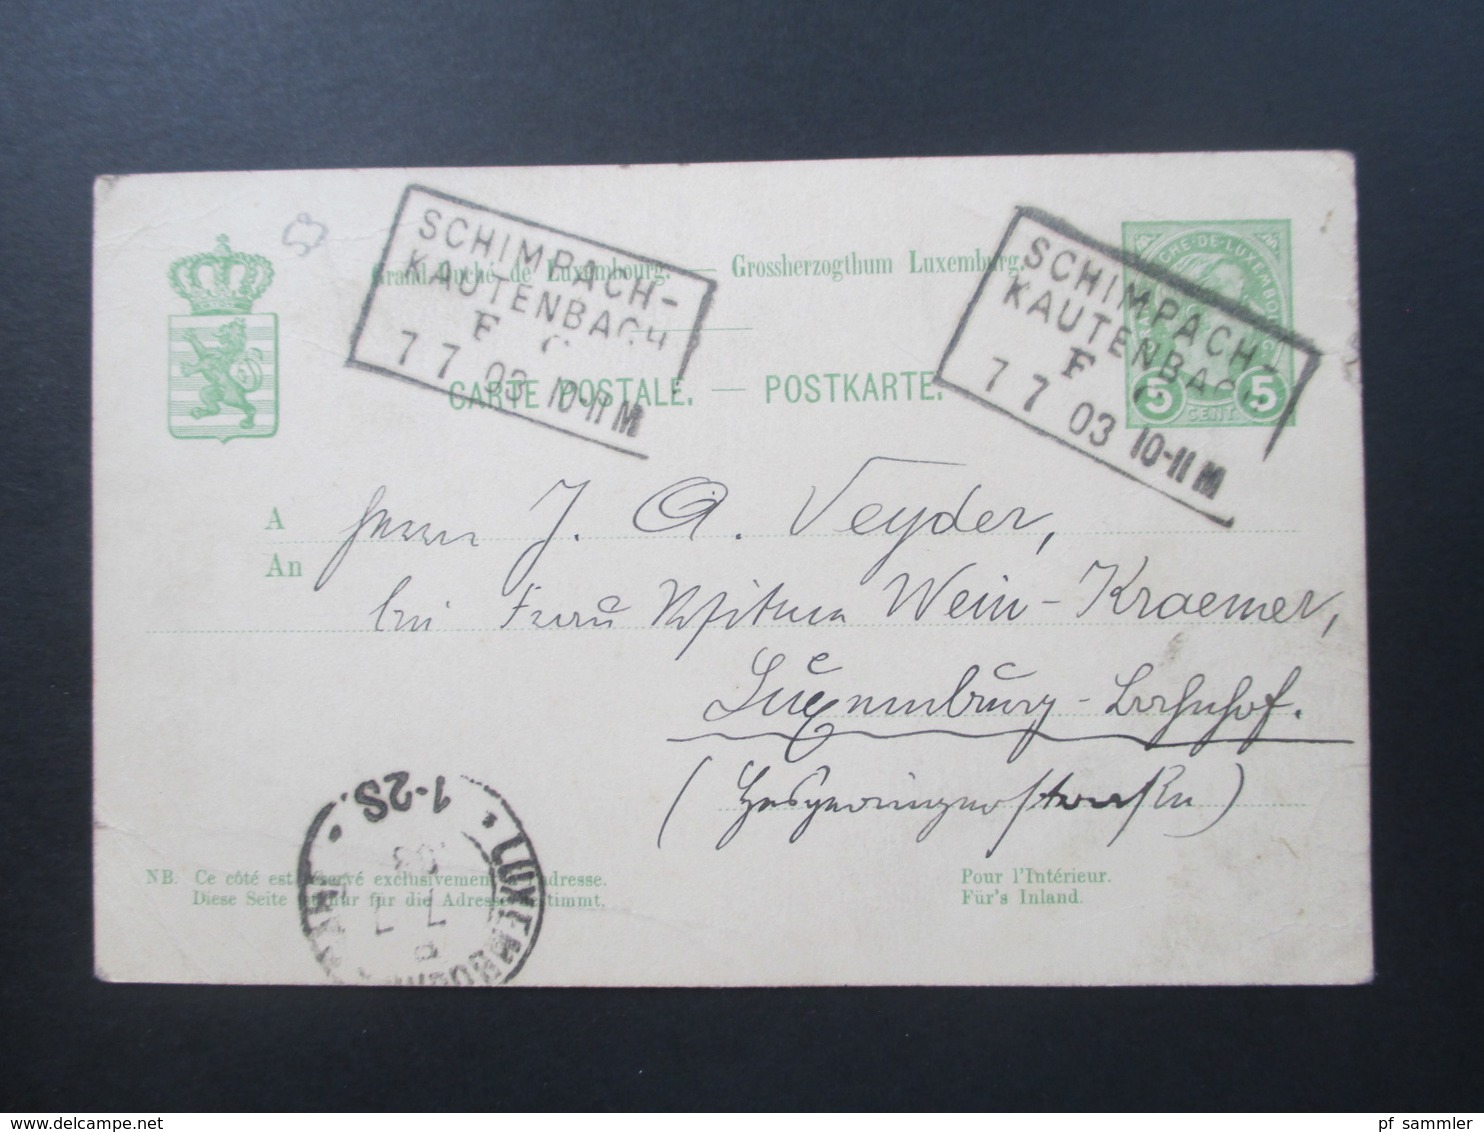 SCHIMPACH-
KAUTENBACH
F
7 7 03 10-11 M
SCHIMPACH-
KAUTENBAC
F
7 7 03 10-11 M
Grand-Duché de Luxembourg. — Grossherzogthum Luxemburg.
CHÉ·DE·LUXEMBOURG
5 CENT. 5
CARTE POSTALE. — POSTKARTE.
A Herrn J. A. Veyder,
An
bei Frau Wittwe Wein-Kraemer,
Luxemburg-Bahnhof.
(Hesperingerstrasse)
1-2S.
03
7 7
LUXEMBOURG
NB. Ce côté est réservé exclusivement à l'adresse.
Diese Seite ist nur für die Adresse bestimmt.
Pour l'Intérieur.
Für's Inland.
delcampe.net
pf sammler